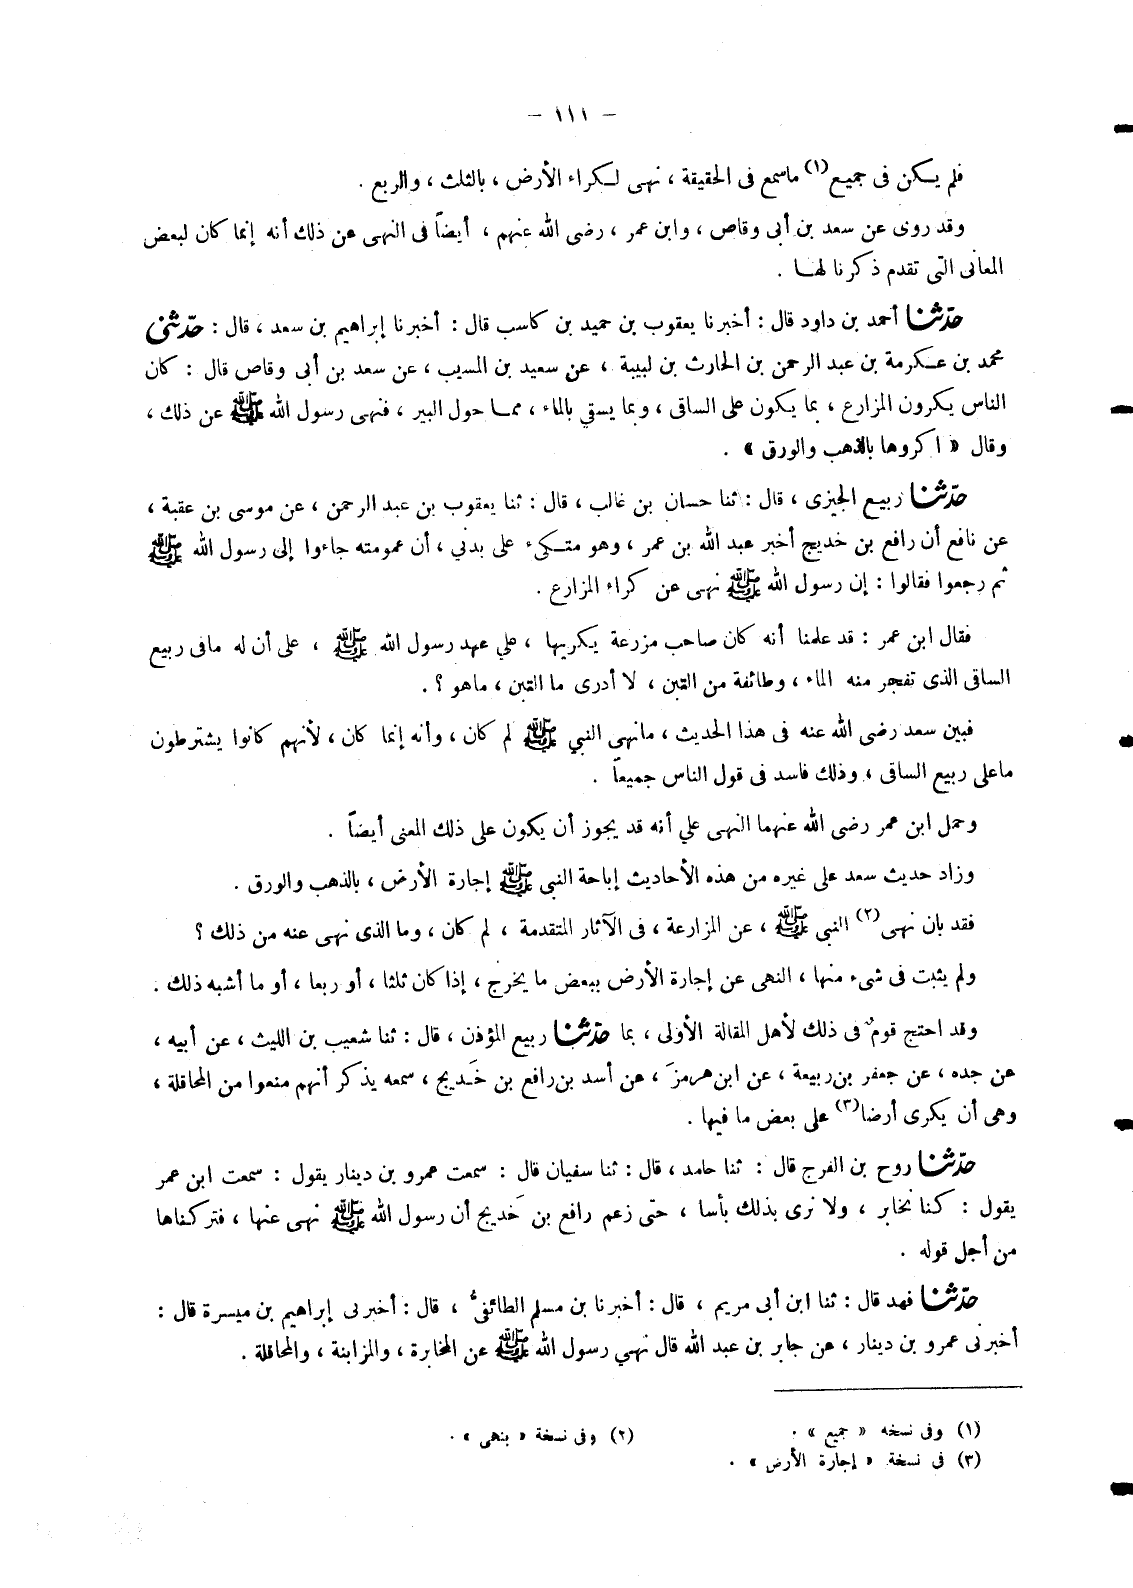 – ١١١ –
فلم يكن فى جميع(١) ماسمع فى الحقيقة ، نهى لكراء الأرض ، بالثلث ، والربع .
وقد روى عن سعد بن أبى وقاص ، وابن عمر ، رضى الله عنهم ، أيضاً فى النهى عن ذلك أنه إنما كان لبعض
المعانى التى تقدم ذكرنا لها .
حدّثنا أحمد بن داود قال : أخبرنا يعقوب بن حميد بن كاسب قال : أخبرنا إبراهيم بن سعد ، قال : حدّثنى
محمد بن عكرمة بن عبد الرحمن بن الحارث بن لبيبة ، عن سعيد بن المسيب ، عن سعد بن أبى وقاص قال : كان
الناس يكرون المزارع ، بما يكون على الساقى ، وبما يسقي بالماء ، مما حول البير ، فنهى رسول الله ﷺ عن ذلك ،
وقال « اكروها بالذهب والورق » .
حدّثنا ربيع الجيزى ، قال : ثنا حسان بن غالب ، قال : ثنا يعقوب بن عبد الرحمن ، عن موسى بن عقبة ،
عن نافع أن رافع بن خديج أخبر عبد الله بن عمر ، وهو متكىء على بدني ، أن عمومته جاءوا إلى رسول الله ﷺ
ثم رجعوا فقالوا : إن رسول الله ﷺ نهى عن كراء المزارع .
فقال ابن عمر : قد علمنا أنه كان صاحب مزرعة يكريها ، علي عهد رسول الله ﷺ ، على أن له مافى ربيع
الساقى الذى تفجر منه الماء ، وطائفة من التبن ، لا أدرى ما التبن ، ماهو ؟ .
فبين سعد رضى الله عنه فى هذا الحديث ، مانهى النبي ﷺ لم كان ، وأنه إنما كان ، لأنهم كانوا يشترطون
ماعلى ربيع الساقى ، وذلك فاسد فى قول الناس جميعاً .
وحمل ابن عمر رضى الله عنهما النهى علي أنه قد يجوز أن يكون على ذلك المعنى أيضاً .
وزاد حديث سعد على غيره من هذه الأحاديث إباحة النبي ﷺ إجارة الأرض ، بالذهب والورق .
فقد بان نهى(٢) النبى ﷺ ، عن المزارعة ، فى الآثار المتقدمة ، لم كان ، وما الذى نهى عنه من ذلك ؟
ولم يثبت فى شىء منها ، النهى عن إجارة الأرض ببعض ما يخرج ، إذا كان ثلثا ، أو ربعا ، أو ما أشبه ذلك .
وقد احتج قومٌ فى ذلك لأهل المقالة الأولى ، بما حدّثنا ربيع المؤذن ، قال : ثنا شعيب بن الليث ، عن أبيه ،
عن جده ، عن جعفر بن ربيعة ، عن ابن هرمزَ ، عن أسد بن رافع بن خَديج ، سمعه يذكر أنهم منعوا من المحاقلة ،
وهى أن يكرى أرضا(٣) على بعض ما فيها .
حدّثنا روح بن الفرج قال : ثنا حامد ، قال : ثنا سفيان قال : سمعت عمرو بن دينار يقول : سمعت ابن عمر
يقول : كنا نخابر ، ولا نرى بذلك بأسا ، حتى زعم رافع بن خَديج أن رسول الله ﷺ نهى عنها ، فتركناها
من أجل قوله .
حدّثنا فهد قال : ثنا ابن أبى مريم ، قال : أخبرنا بن مسلم الطائفىُّ ، قال : أخبرنى إبراهيم بن ميسرة قال :
أخبرنى عمرو بن دينار ، عن جابر بن عبد الله قال نهي رسول الله ﷺ عن المخابرة ، والمزابنة ، والمحاقلة .
(١) وفى نسخه « جميع » . (٢) وفى نسخة « بنهى » .
(٣) فى نسخة « إجارة الأرض » .